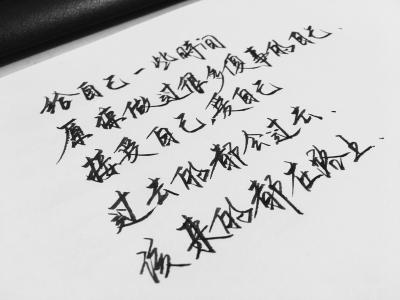 给自己一些时间
原谅做过很多傻事的自己.
接受自己.爱自己
过去的都会过去.
该来的都在路上.